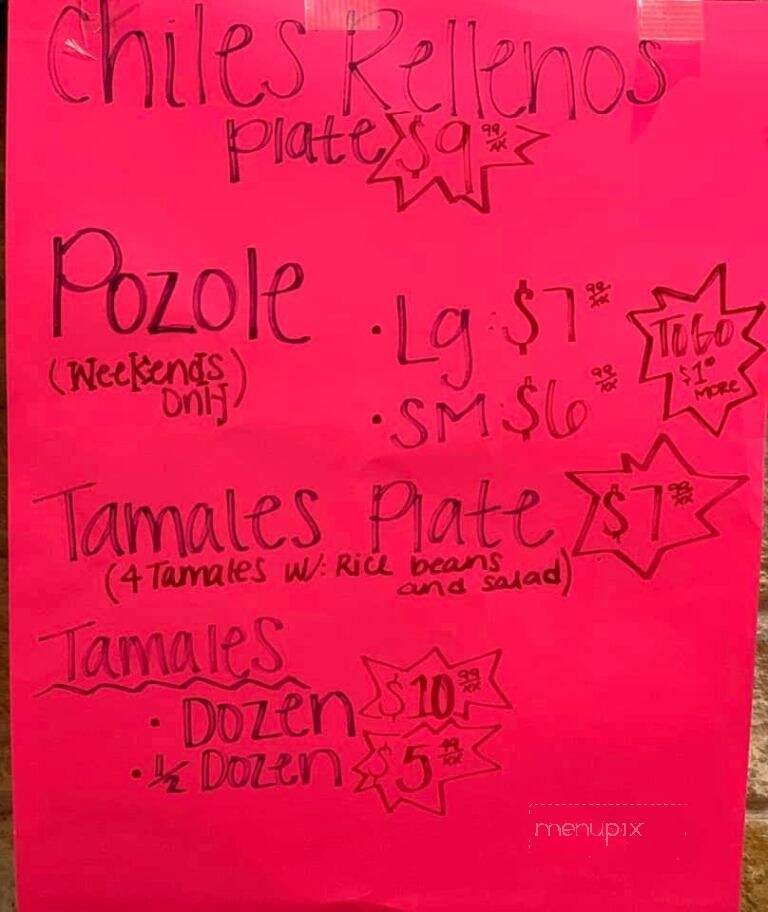 Chiles Rellenos
Plate $9 99/xx
Pozole
(Weekends
Only)
• Lg: $7 99/xx
• SM $6 99/xx
TO GO
$1 00
MORE
Tamales Plate $7 99/xx
(4 Tamales w/: Rice beans
and salad)
Tamales
• Dozen $10 99/xx
• 1/2 Dozen $5 99/xx
menupix